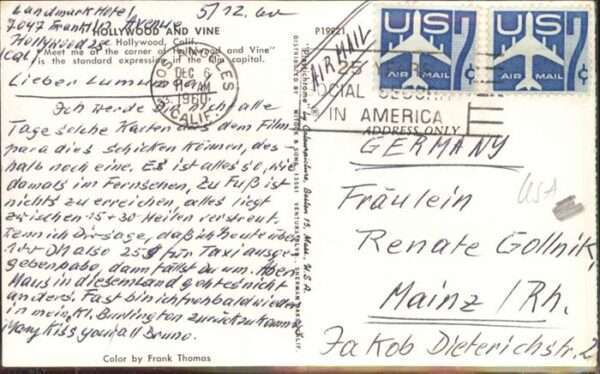 Landmark Hotel,
7047 Franklin Avenue
Hollywood 28
Cal.
5/12. 60
HOLLYWOOD AND VINE
Hollywood, Calif.
"Meet me at the corner of Hollywood and Vine"
is the standard expression in the film capital.
P19021
Lieber
Ich werde nicht alle
Tage solche Karten aus dem Film-
paradies schicken können, des-
halb noch eine. Es ist alles so, wie
damals im Fernsehen, Zu Fuß ist
nichts zu erreichen, alles liegt
zwischen 15 + 30 Meilen verstreut.
Wenn ich Dir sage, daß ich heute über
100 DM also 25 $ für Taxi ausge-
geben habe, dann fällst Du um. Aber
Maus in diesem Land geht es nicht
anders. Fast bin ich froh bald wieder
in mein kl. Burlington zurückzukommen
Many Kiss you all Bruno.
Color by Frank Thomas
LOS ANGELES
DEC 6
AM
1960
CALIF.
AIR MAIL
US 7¢
AIR MAIL
US 7¢
AIR MAIL
25 YEARS
SOCIAL SECURITY
IN AMERICA
ADDRESS ONLY
GERMANY
USA
Fräulein
Renate Gollnik,
Mainz /Rh.
Jakob Dieterichstr. 2